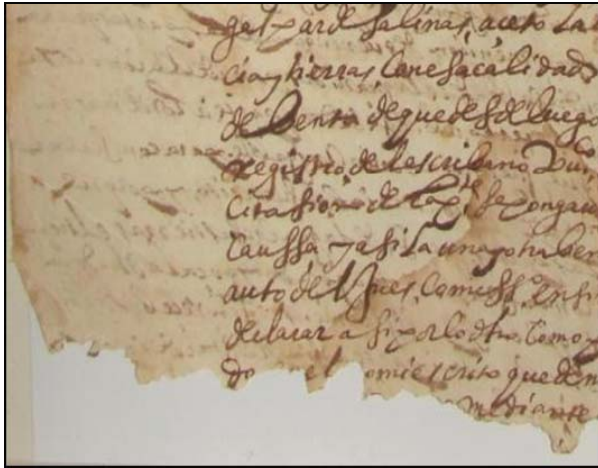 gaspar de salinas, aceto la
cia y tierras con esa calidad
de benta de que desde luego
Registro del escribano
citasion de la pte se ponga
caussa y asi la una y otra ben
auto del Jues Comiss.º en
declarar a si por lo dho como
do en el escrito que den
mediante